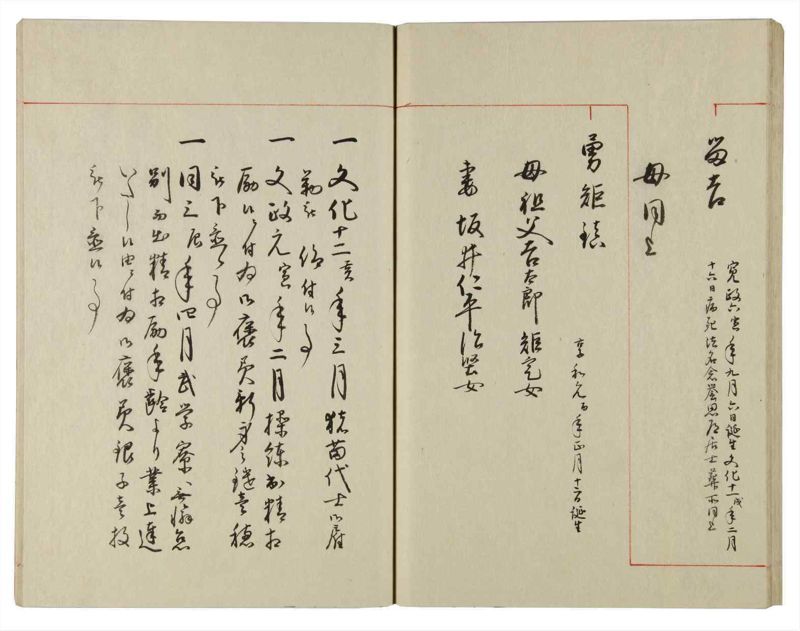 留吉
寛政六寅年九月六日誕生文化十一戌年二月
十六日病死法名念誉思 居士葬所同上
母同上
勇矩鎮
享和元酉年正月十二日誕生
母祖父吉太郎矩定女
妻坂井仁平 女
一文化十二亥年三月猪苗代士
勤被 仰付候事
一文政元寅年二月操練出精相
励候付為御褒美新身之鑓壱穂
被下置候事
一同三辰年四月武学寮 無懈怠
別而出精相励年齢より業上達
いたし候 付為御褒美銀子壱枚
被下置候事